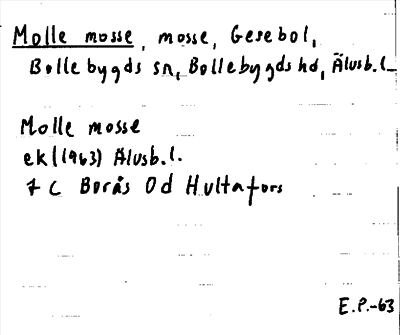 Molle mosse, mosse, Gesebol,
Bollebygds sn, Bollebygds hd, Älvsb.l.
Molle mosse
ek (1963) Älvsb.l.
7 C Borås 0d Hultafors
E.P.-63